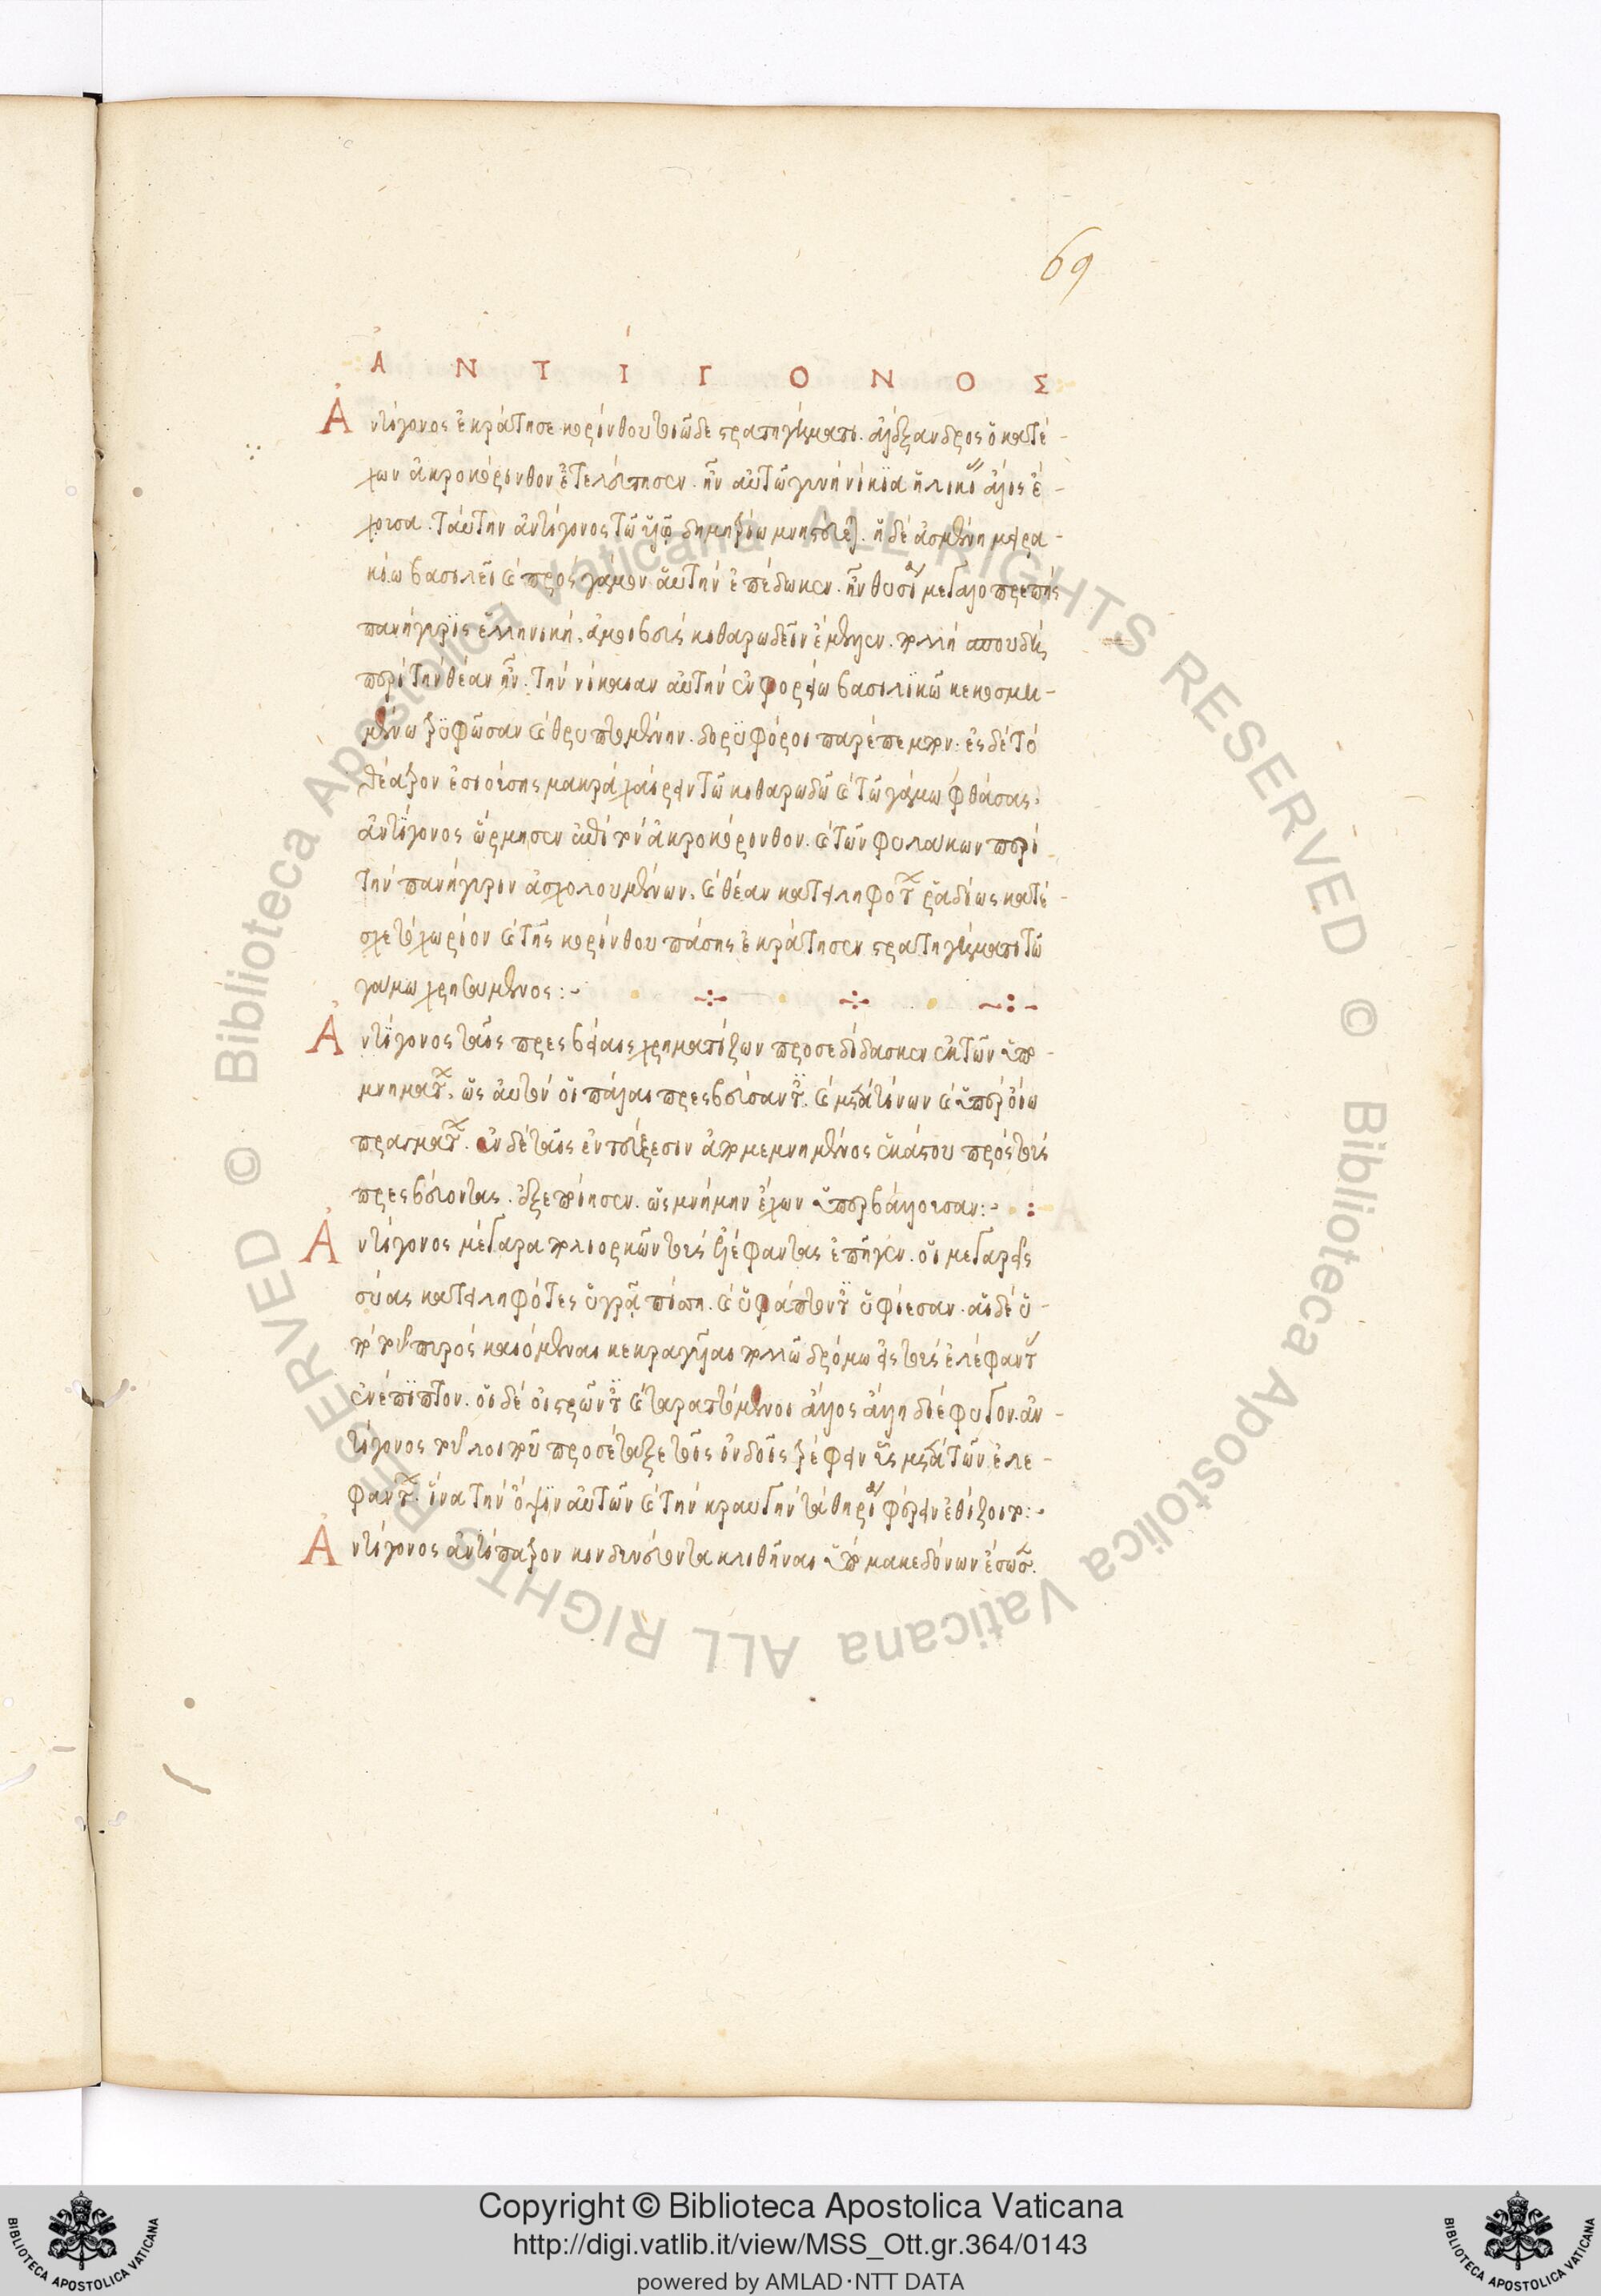 69
ἈΝΤΊΓΟΝΟΣ
Ἀντίγονος ἐκράτησε κορίνθου τοιῶδε στρατηγήματι. ἀλέξανδρος ὁ κατέ-
χων ἀκροκόρινθον ἐτελεύτησεν. ἦν αὐτῶ γυνὴ νίκαια ἡλικίας ἅλις ἔ-
χουσα. ταύτην ἀντίγονος τῶ υἱῶ δημητρίω μνηστεύεται. ἡ δὲ ἀσμένη μειρα-
κίω βασιλεῖ καὶ πρὸς γάμον αὑτὴν ἐπέδωκεν. ἦν θυσία μεγαλοπρεπὴς
πανήγυρις ἑλληνικὴ. ἀμοιβεὺς κιθαρωδεῖν ἔμελλεν. πολλὴ σπουδὴ
περὶ τὴν θέαν ἦν. τὴν νίκαιαν αὐτὴν ἐν φορείω βασιλικῶ κεκοσμη-
μένω τρυφῶσαν καὶ θρυπτομένην. δορυφόροι παρέπεμπον. ἐς δὲ τὸ
θέατρον ἐσιούσης μακρὰ χαίρειν τῶ κιθαρωδῶ καὶ τῶ γάμω φθάσας.
ἀντίγονος ὥρμησεν ἐπὶ τὸν ἀκροκόρινθον. καὶ τῶν φυλάκων περὶ
τὴν πανήγυριν ἀσχολουμένων. καὶ θέαν κατειληφότων ῥαδίως κατέ-
σχε τὸ χωρίον καὶ τῆς κορίνθου πάσης ἐκράτησεν στρατηγήματι τῶ
γάμω χρησάμενος:-
Ἀντίγονος ταῖς πρεσβείαις χρηματίζων προσεδίδασκεν ἐκ τῶν ὑπο-
μνημάτων. ὡς αὐτὸν οἱ πάλαι πρεσβεύσαντες. καὶ μετὰ τίνων καὶ ὑπὲρ οἵων
πραγμάτων. ἐν δὲ ταῖς ἐντεύξεσιν ἀπομεμνημένος ἑκάστου πρὸς τοὺς
πρεσβεύοντας. ἐξεπόησεν. ὡς μνήμην ἔχων ὑπερβάλλουσαν:-
Ἀντίγονος μέγαρα πολιορκῶν τοὺς ἐλέφαντας ἐπῆγεν. οἱ μεγαρεῖς
σύας κατειληφότες ὑγρᾶ πίσση. καὶ ὑφάπτοντες ὑφίεσαν. αἱ δὲ ὑ-
πὸ τοῦ πυρὸς καιόμεναι κεκραγυῖαι πολλῶ δρόμω εἰς τοὺς ἐλέφαντας
ἐνέπιπτον. οἱ δὲ οἰστρῶντες καὶ ταραττόμενοι ἄλλος ἄλλη διέφυγον. ἀν-
τίγονος τοῦ λοιποῦ προσέταξε τοῖς ἰνδοῖς τρέφειν ὗς μετὰ τῶν ἐλε-
φάντων. ἵνα τὴν ὄψιν αὐτῶν καὶ τὴν κραυγὴν τὰ θηρία φέρειν ἐθίζοιτο:-
Ἀντίγονος ἀντίπατρον κινδυνεύοντα κλιθῆναι ὑπὸ μακεδόνων ἔσωσε.
Copyright © Biblioteca Apostolica Vaticana
http://digi.vatlib.it/view/MSS_Ott.gr.364/0143
powered by AMLAD·NTT DATA
BIBLIOTECA APOSTOLICA VATICANA
BIBLIOTECA APOSTOLICA VATICANA
© Biblioteca Apostolica Vaticana ALL RIGHTS RESERVED © Biblioteca Apostolica Vaticana ALL RIGHTS RESERVED